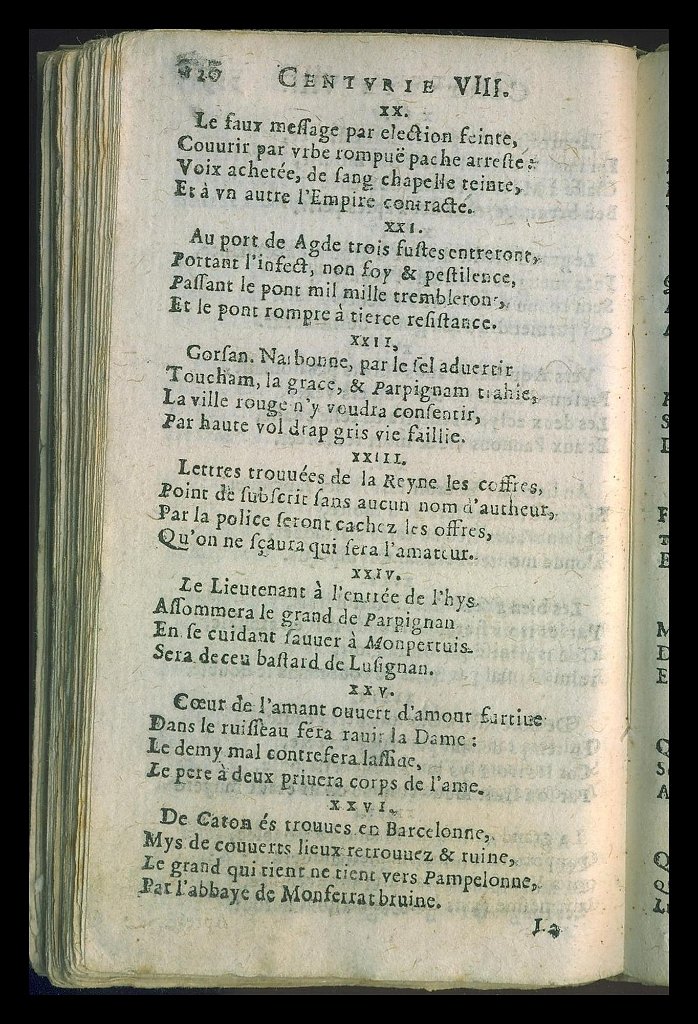 120 CENTVRIE VIII.
XX.
Le faux meſſage par election feinte,
Couurir par vrbe rompuë pache arreſte :
Voix achetée, de ſang chapelle teinte,
Et à vn autre l'Empire contracte.
XXI.
Au port de Agde trois fuſtes entreront,
Portant l'infect, non foy & peſtilence,
Paſſant le pont mil mille trembleront,
Et le pont rompre à tierce reſiſtance.
XXII,
Gorſan. Narbonne, par le ſel aduertir
Toucham, la grace, & Parpignam trahie,
La ville rouge n'y voudra conſentir,
Par haute vol drap gris vie faillie.
XXIII.
Lettres trouuées de la Reyne les coffres,
Point de ſubſcrit ſans aucun nom d'autheur,
Par la police ſeront cachez les offres,
Qu'on ne ſçaura qui ſera l'amateur.
XXIV.
Le Lieutenant à l'entrée de l'hys
Aſſommera le grand de Parpignan
En ſe cuidant ſauuer à Monpertuis.
Sera deceu baſtard de Luſignan.
XXV.
Cœur de l'amant ouuert d'amour furtiue
Dans le ruiſſeau fera rauir la Dame :
Le demy mal contrefera laſſiue,
Le pere à deux priuera corps de l'ame.
XXVI.
De Caton és trouues en Barcelonne,
Mys de couuerts lieux retrouuez & ruine,
Le grand qui tient ne tient vers Pampelonne,
Par l'abbaye de Monferrat bruine.